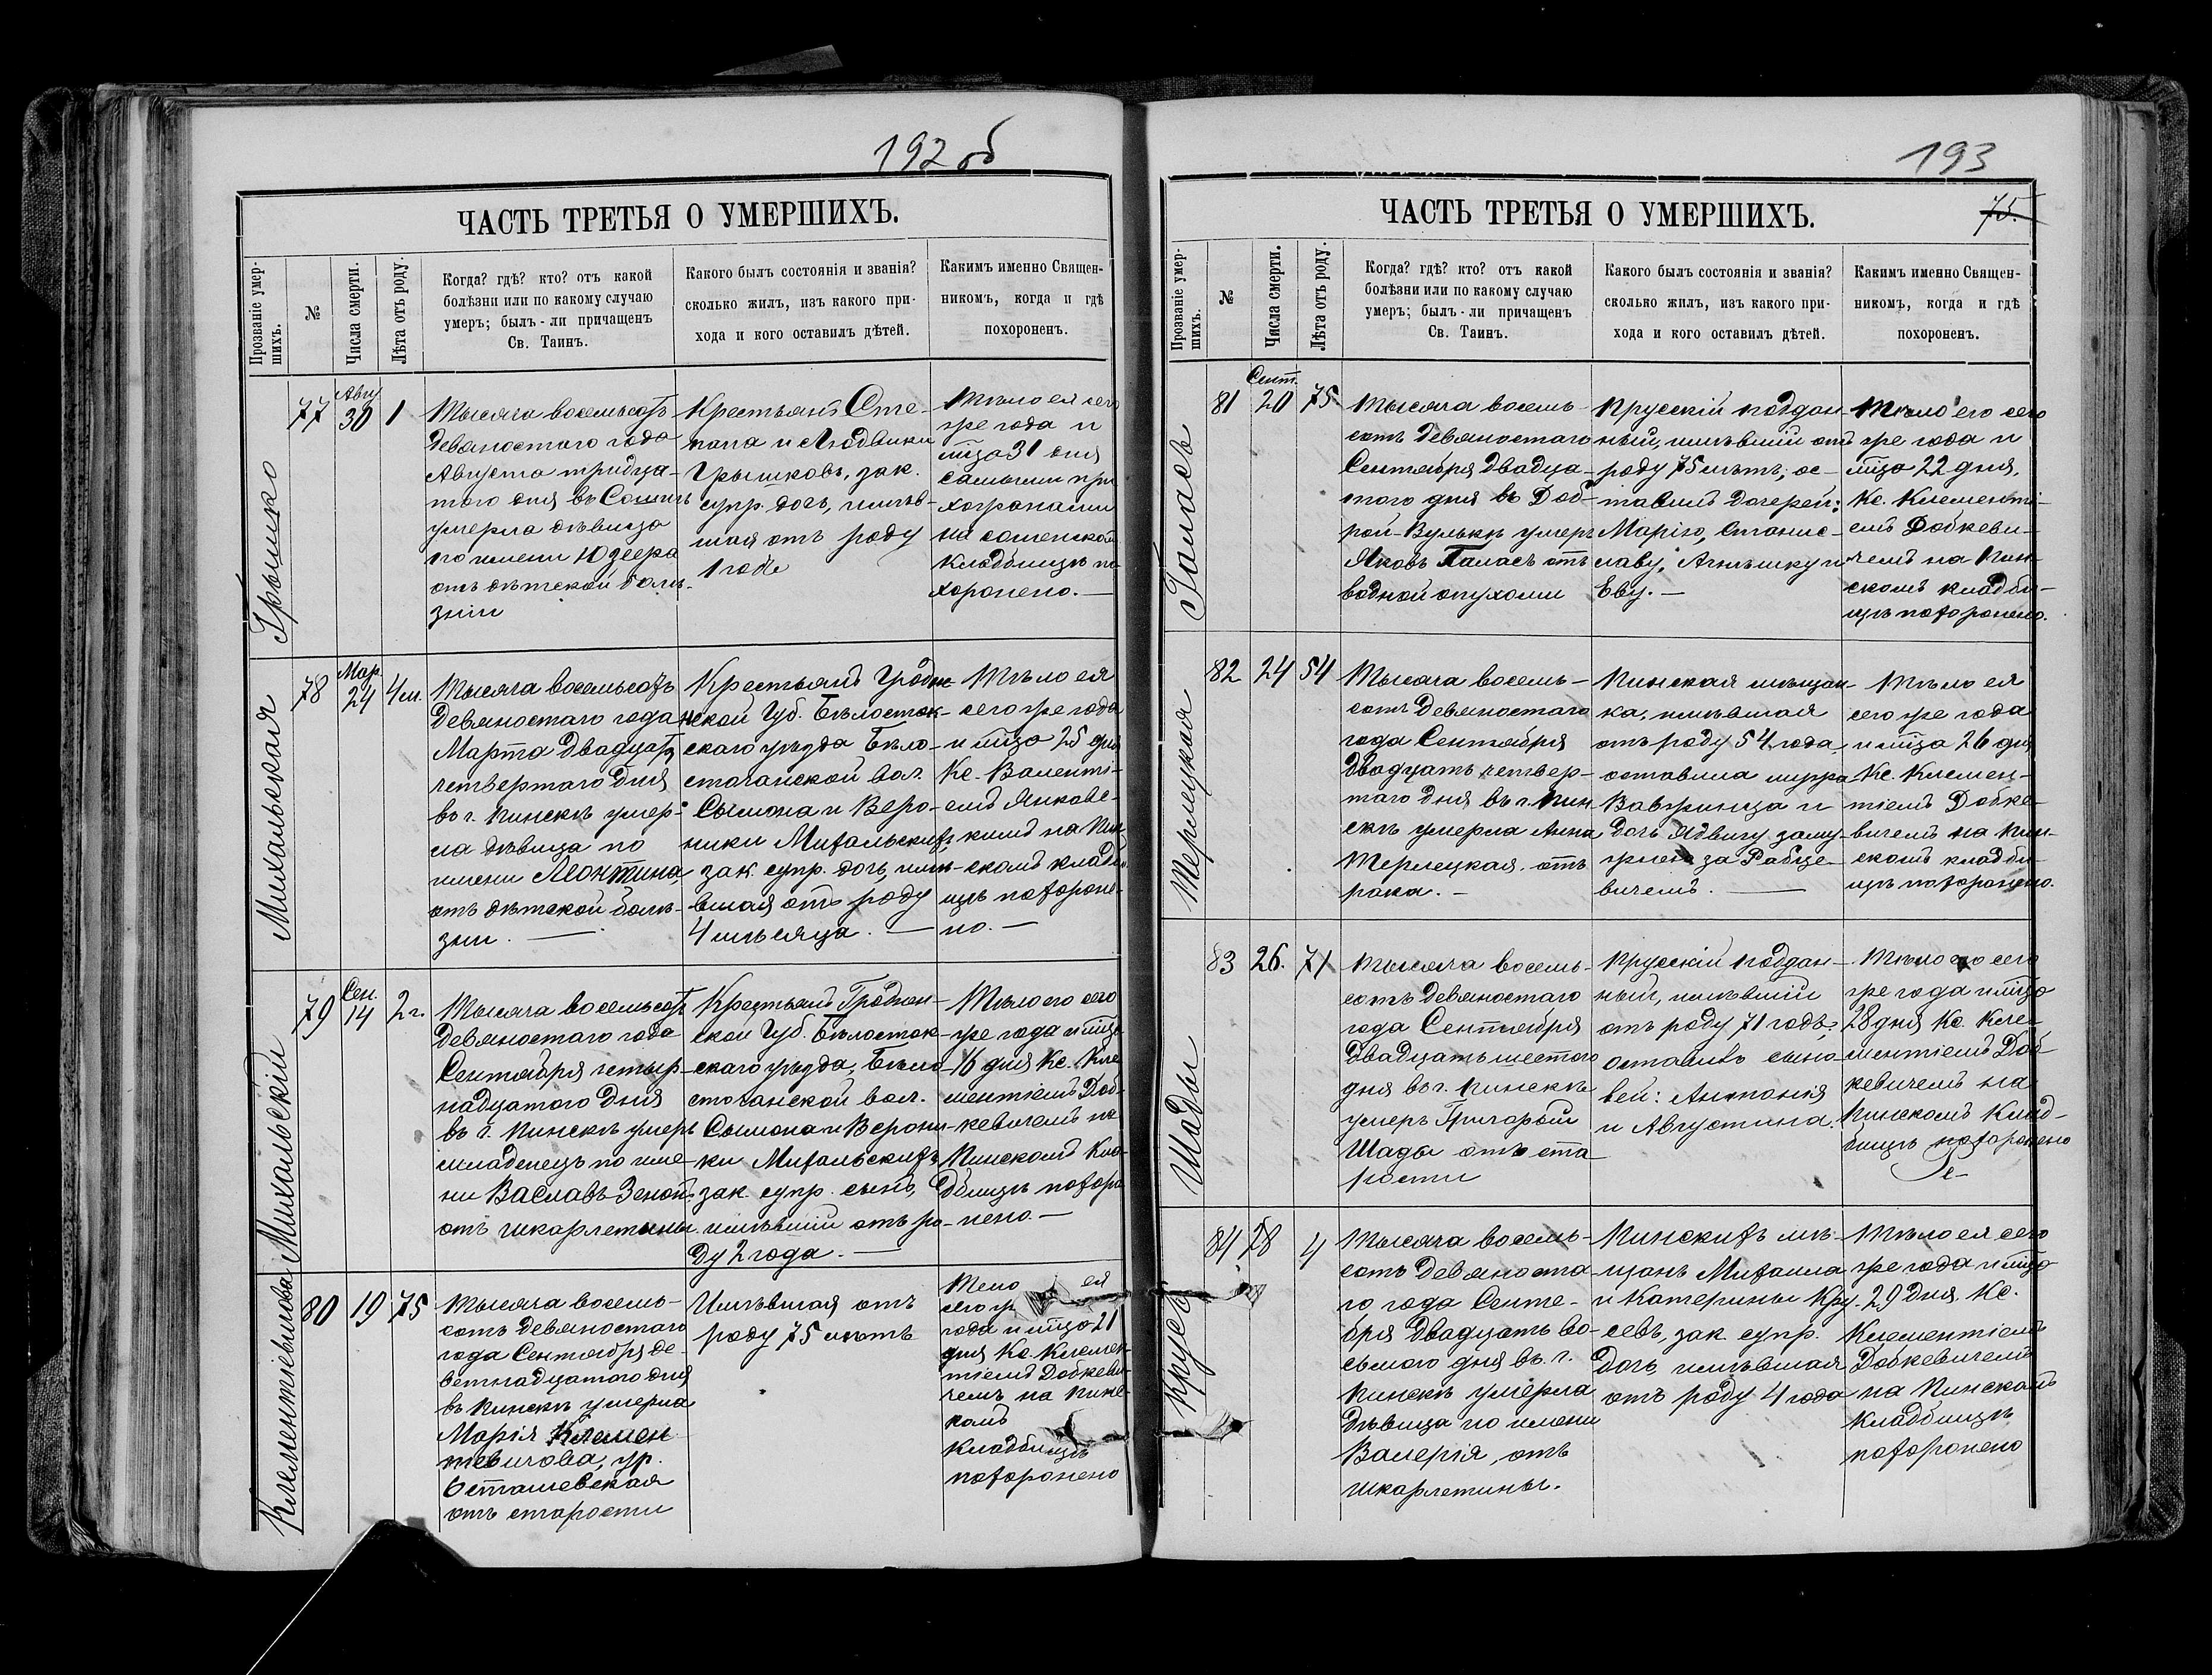 192 об
ЧАСТЬ ТРЕТЬЯ О УМЕРШИХЪ.
Прозваніе умер-
шихъ.
№
Числа смерти.
Лѣта отъ роду.
Когда? гдѣ? кто? отъ какой
болѣзни или по какому случаю
умеръ; былъ-ли причащенъ
Св. Таинъ.
Какого былъ состоянія и званія?
сколько жилъ, изъ какого при-
хода и кого оставилъ дѣтей.
Какимъ именно Священ-
никомъ, когда и гдѣ
похороненъ.
Грышко
77
Авгу
30
1
Тысяча восемьсотъ
девяностаго года
Августа тридца-
таго дня въ
умерла дѣвица
по имени Юзефа
отъ дѣтской болѣ-
зніи
Крестьянъ Сте-
пана и Людвики
Грышковъ, зак.
супр. дочь, имѣв-
шая отъ роду
1 годъ
Тѣло ея сего
же года и
мца 31 дня
самыми при
на
кладбищѣ по
хоронено.—
Михальская
78
Мар.
24
4 м.
Тысяча восемьсотъ
девяностаго года
Марта двадцать
четвертаго дня
въ г. Пинскѣ умер-
ла дѣвица по
имени Леонтина
отъ дѣтской болѣ-
зни. —
Крестьянъ Гродне
нской Губ. Бѣлосток-
скаго уѣзда Бѣло-
сточанской вол.
Сымона и Веро-
ники Михальскихъ,
зак. супр. дочь, имѣ-
вшая отъ роду
4 мѣсяца. —
Тѣло ея
сего же года
и мца 25 дня
Кс. Валенті-
емъ Янковс-
кимъ на Пин
скомъ кладби
щѣ похороне-
но. —
Михальскій
79
Сен.
14
2 г.
Тысяча восемьсотъ
девяностаго года
Сентября четыр-
надцатаго дня
въ г. Пинскѣ умеръ
младенецъ по име-
ни Ваславъ-Зенонъ
отъ шкарлетины
Крестьянъ Гроднен-
ской Губ. Бѣлосток-
скаго уѣзда, Бѣло
сточанской вол.
Сымона и Верони-
ки Михальскихъ
зак. супр. сынъ,
имѣвшій отъ ро-
ду 2 года. —
Тѣло его сего
же года и мца
16 дня Кс. Кле
ментіемъ Доб-
кевичемъ на
Пинскомъ Кла-
дбищѣ похоро
нено. —
80
19
75
Тысяча восемь-
сотъ девяностаго
года Сентября де-
вятнадцатаго дня
въ Пинскѣ умерла
Марія Клемен
тевичова, ур.
Осташевская
отъ старости
Имѣвшая отъ
роду 75 лѣтъ
Тело ея
сего ж
года и мца 21
дня Кс. Клемен
тіемъ Добкеви-
чемъ на Пинс-
комъ
Кладбищѣ
похоронено
193
75.
ЧАСТЬ ТРЕТЬЯ О УМЕРШИХЪ.
Прозваніе умер-
шихъ.
№
Числа смерти.
Лѣта отъ роду.
Когда? гдѣ? кто? отъ какой
болѣзни или по какому случаю
умеръ; былъ-ли причащенъ
Св. Таинъ.
Какого былъ состоянія и званія?
сколько жилъ, изъ какого при-
хода и кого оставилъ дѣтей.
Какимъ именно Священ-
никомъ, когда и гдѣ
похороненъ.
81
Сент.
20
75
Тысяча восемь-
сотъ девяностаго
Сентября двадца-
таго дня въ Доб-
рой-Вулькѣ умеръ
Яковъ отъ
водной опухоли
Прусскій поддан-
ный, имѣвшій отъ
роду 75 лѣтъ, ос-
тавилъ дочерей:
Марію, Станис-
лаву, Агнѣшку и
Еву. —
Тѣло его сего
же года и
мца 22 дня,
Кс. Клементі-
емъ Добкеви-
чемъ на Пин-
скомъ кладби-
щѣ похоронено.
Терлецкая
82
24
54
Тысяча восемь-
сотъ девяностаго
года Сентября
двадцать четвер-
таго дня въ г. Пин
скѣ умерла Анна
Терлецкая отъ
рака. —
Пинская мѣщан-
ка, имѣвшая
отъ роду 54 года,
оставила мужа
Вавжинца и
дочь Ядвигу, заму-
жнею за Рабце-
вичемъ. —
Тѣло ея
сего же года
и мца 26 дня
Кс. Клемен-
тіемъ Добке-
вичемъ на Пин-
скомъ кладби-
щѣ похоронено.
Шады
83
26.
71
Тысяча восемь-
сотъ девяностаго
года Сентября
двадцать шестаго
дня въ г. Пинскѣ
умеръ Григорый
Шады отъ ста
рости
Прусскій поддан-
ный, имѣвшій
отъ роду 71 годъ,
оставилъ сыно
вей: Антонія
и Августина.
Тѣло его сего
же года и мца
28 дня Кс. Кле-
ментіемъ Доб-
кевичемъ на
Пинскомъ Клад-
бищѣ похоронено
Крусь
84
28
4
Тысяча восемь-
сотъ девяноста-
го года Сентя-
бря двадцать во-
сьмого дня въ г.
Пинскѣ умерла
дѣвица по имени
Валерія, отъ
шкарлетины.
Пинскихъ мѣ-
щанъ Михаила
и Катерины Кру-
севъ, зак. супр.
дочь, имѣвшая
отъ роду 4 года
Тѣло ея сего
же года и мца
29 дня. Кс.
Клементіемъ
Добкевичемъ
на Пинскомъ
Кладбищѣ
похоронено